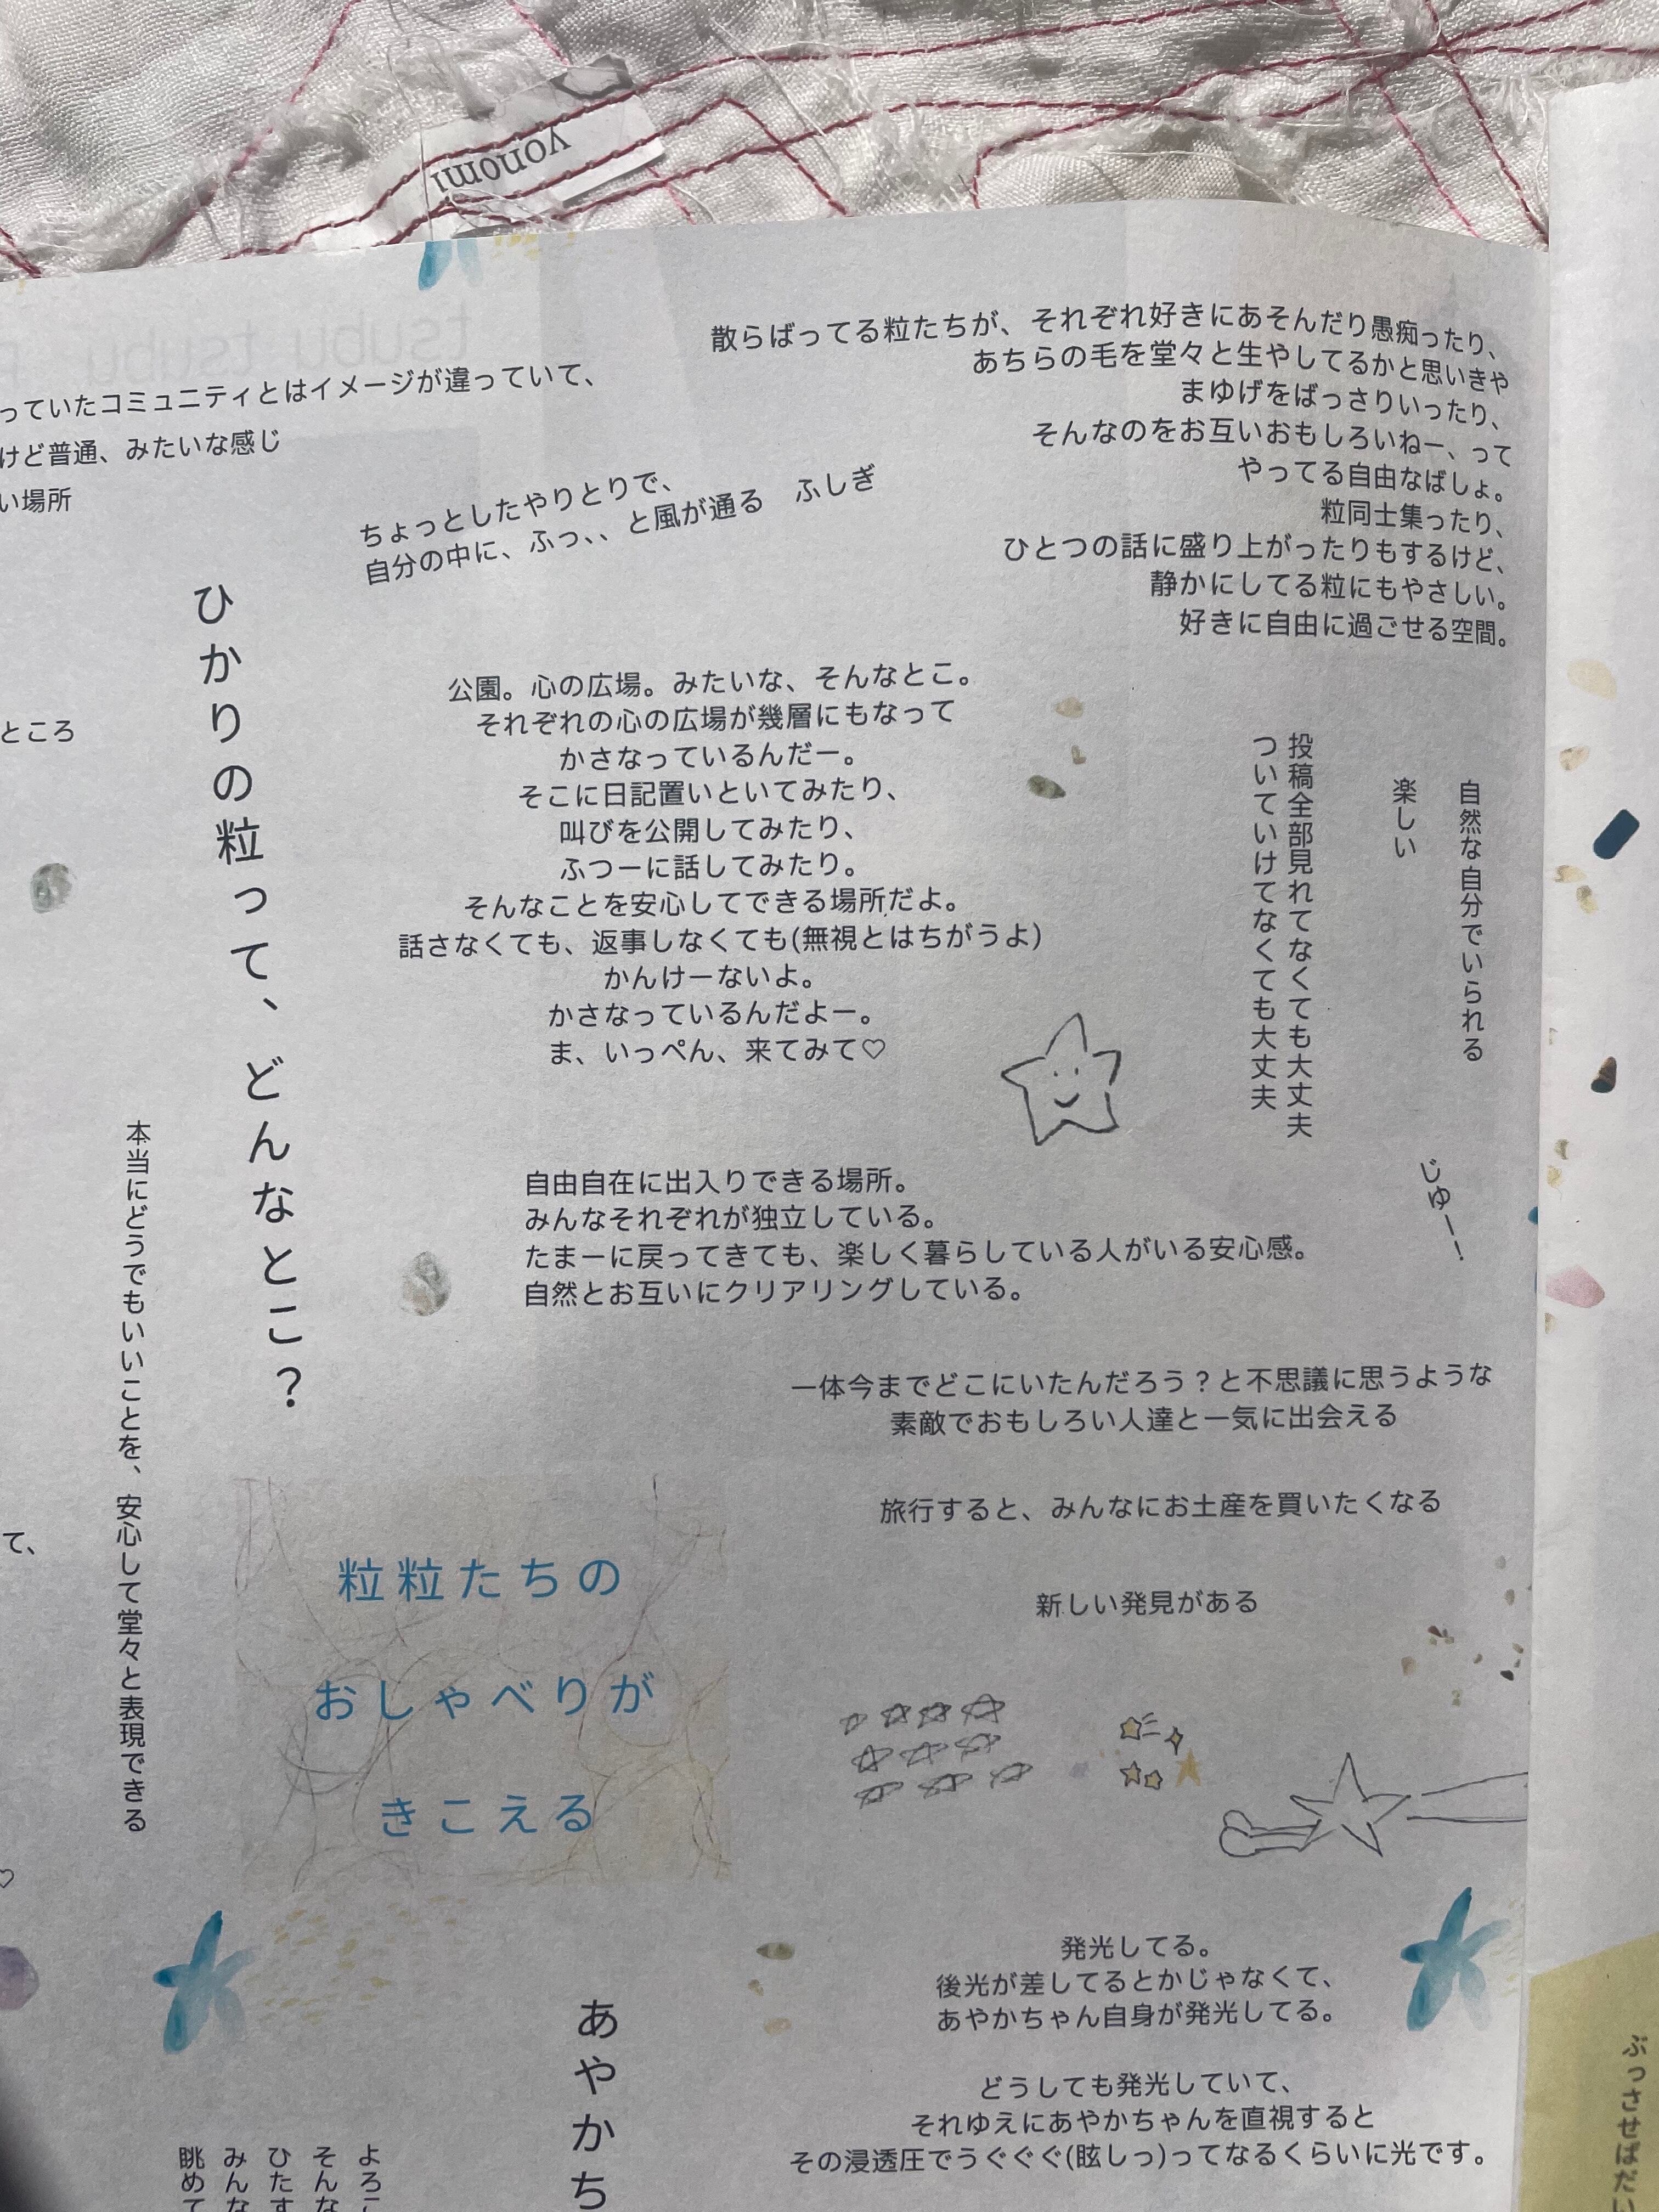 yonomi
tsubu tsubu
散らばってる粒たちが、それぞれ好きにあそんだり愚痴ったり、
あちらの毛を堂々と生やしてるかと思いきや
まゆげをばっさりいったり、
そんなのをお互いおもしろいねー、って
やってる自由なばしょ。
粒同士集ったり、
ひとつの話に盛り上がったりもするけど、
静かにしてる粒にもやさしい。
好きに自由に過ごせる空間。
っていたコミュニティとはイメージが違っていて、
けど普通、みたいな感じ
い場所
ちょっとしたやりとりで、
自分の中に、ふっ、、と風が通る　ふしぎ
ひかりの粒って、どんなとこ？
ところ
公園。心の広場。みたいな、そんなとこ。
それぞれの心の広場が幾層にもなって
かさなっているんだー。
そこに日記置いといてみたり、
叫びを公開してみたり、
ふつーに話してみたり。
そんなことを安心してできる場所だよ。
話さなくても、返事しなくても(無視とはちがうよ)
かんけーないよ。
かさなっているんだよー。
ま、いっぺん、来てみて♡
自然な自分でいられる
楽しい
投稿全部見れてなくても大丈夫
ついていけてなくても大丈夫
じゅーー！
自由自在に出入りできる場所。
みんなそれぞれが独立している。
たまーに戻ってきても、楽しく暮らしている人がいる安心感。
自然とお互いにクリアリングしている。
本当にどうでもいいことを、安心して堂々と表現できる
一体今までどこにいたんだろう？と不思議に思うような
素敵でおもしろい人達と一気に出会える
旅行すると、みんなにお土産を買いたくなる
新しい発見がある
て、
♡
粒粒たちの
おしゃべりが
きこえる
発光してる。
後光が差してるとかじゃなくて、
あやかちゃん自身が発光してる。
どうしても発光していて、
それゆえにあやかちゃんを直視すると
その浸透圧でうぐぐぐ(眩しっ)ってなるくらいに光です。
あやかち
よろこ
そんな
ひたす
みんな
眺めて
ぶっさせばだい